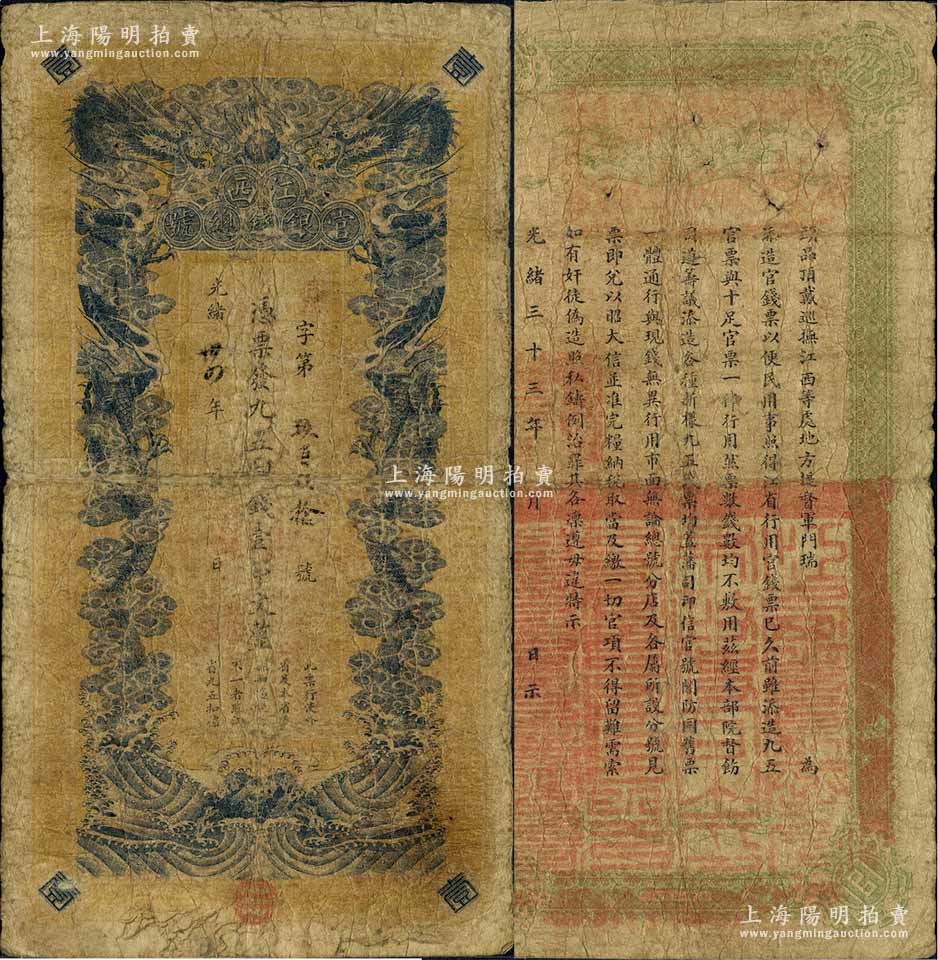 上海陽明拍賣
www.yangmingauction.com
壹
壹
江西
官銀錢總號
字第 號
憑票發九五官錢壹千文整
光緒卅四年 日
此票行使外
壹
上海陽明拍賣
www.yangmingauction.com
頭品頂戴巡撫江西等處地方提督軍門瑞 為
添造官錢票以便民用事照得江省行用官錢票已久前雖添造九五
官票與十足官票一律行用然票數錢數均不敷用茲經本部院督飭
司道籌議添造各種新樣九五錢票均蓋藩司印信官號關防同舊票
一體通行與現錢無異行用市面無論總號分店及各屬所設分號見
票即兌以昭大信並准完糧納稅取當及繳一切官項不得留難需索
如有奸徒偽造照私鑄例治罪其各凜遵毋違特示
光緒三十三年 月 日示
上海陽明拍賣
www.yangmingauction.com